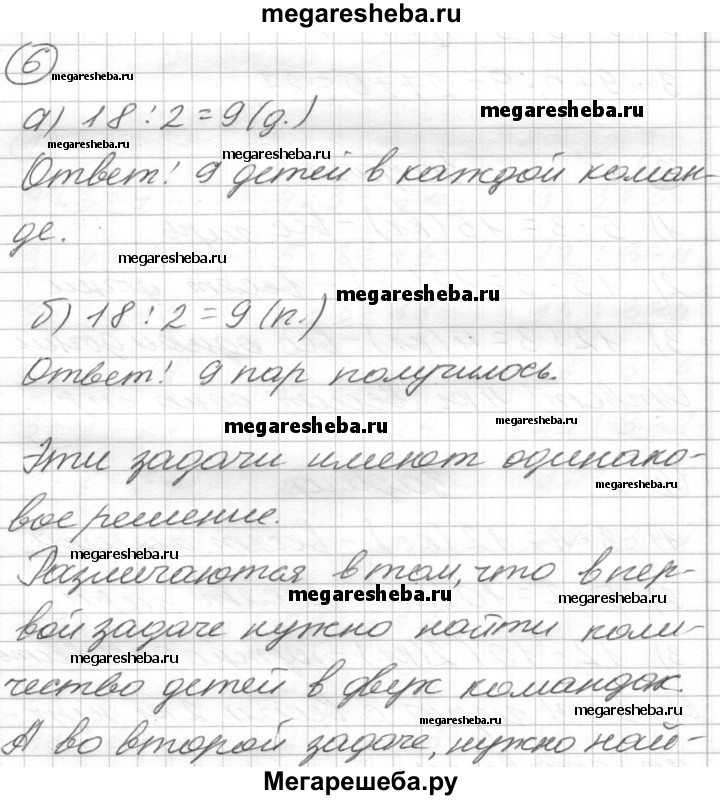 megaresheba.ru
6
megaresheba.ru
а) 18 : 2 = 9 (д.)
megaresheba.ru
megaresheba.ru
megaresheba.ru
Ответ: 9 детей в каждой коман-
де.
megaresheba.ru
megaresheba.ru
б) 18 : 2 = 9 (п.)
Ответ: 9 пар получилось.
megaresheba.ru
megaresheba.ru
Эти задачи имеют одинако-
megaresheba.ru
вое решение.
megaresheba.ru
Различаются в том, что в пер-
megaresheba.ru
megaresheba.ru
вой задаче нужно найти коли-
megaresheba.ru
чество детей в двух командах.
megaresheba.ru
megaresheba.ru
А во второй задаче, нужно най-
Мегарешеба.ру